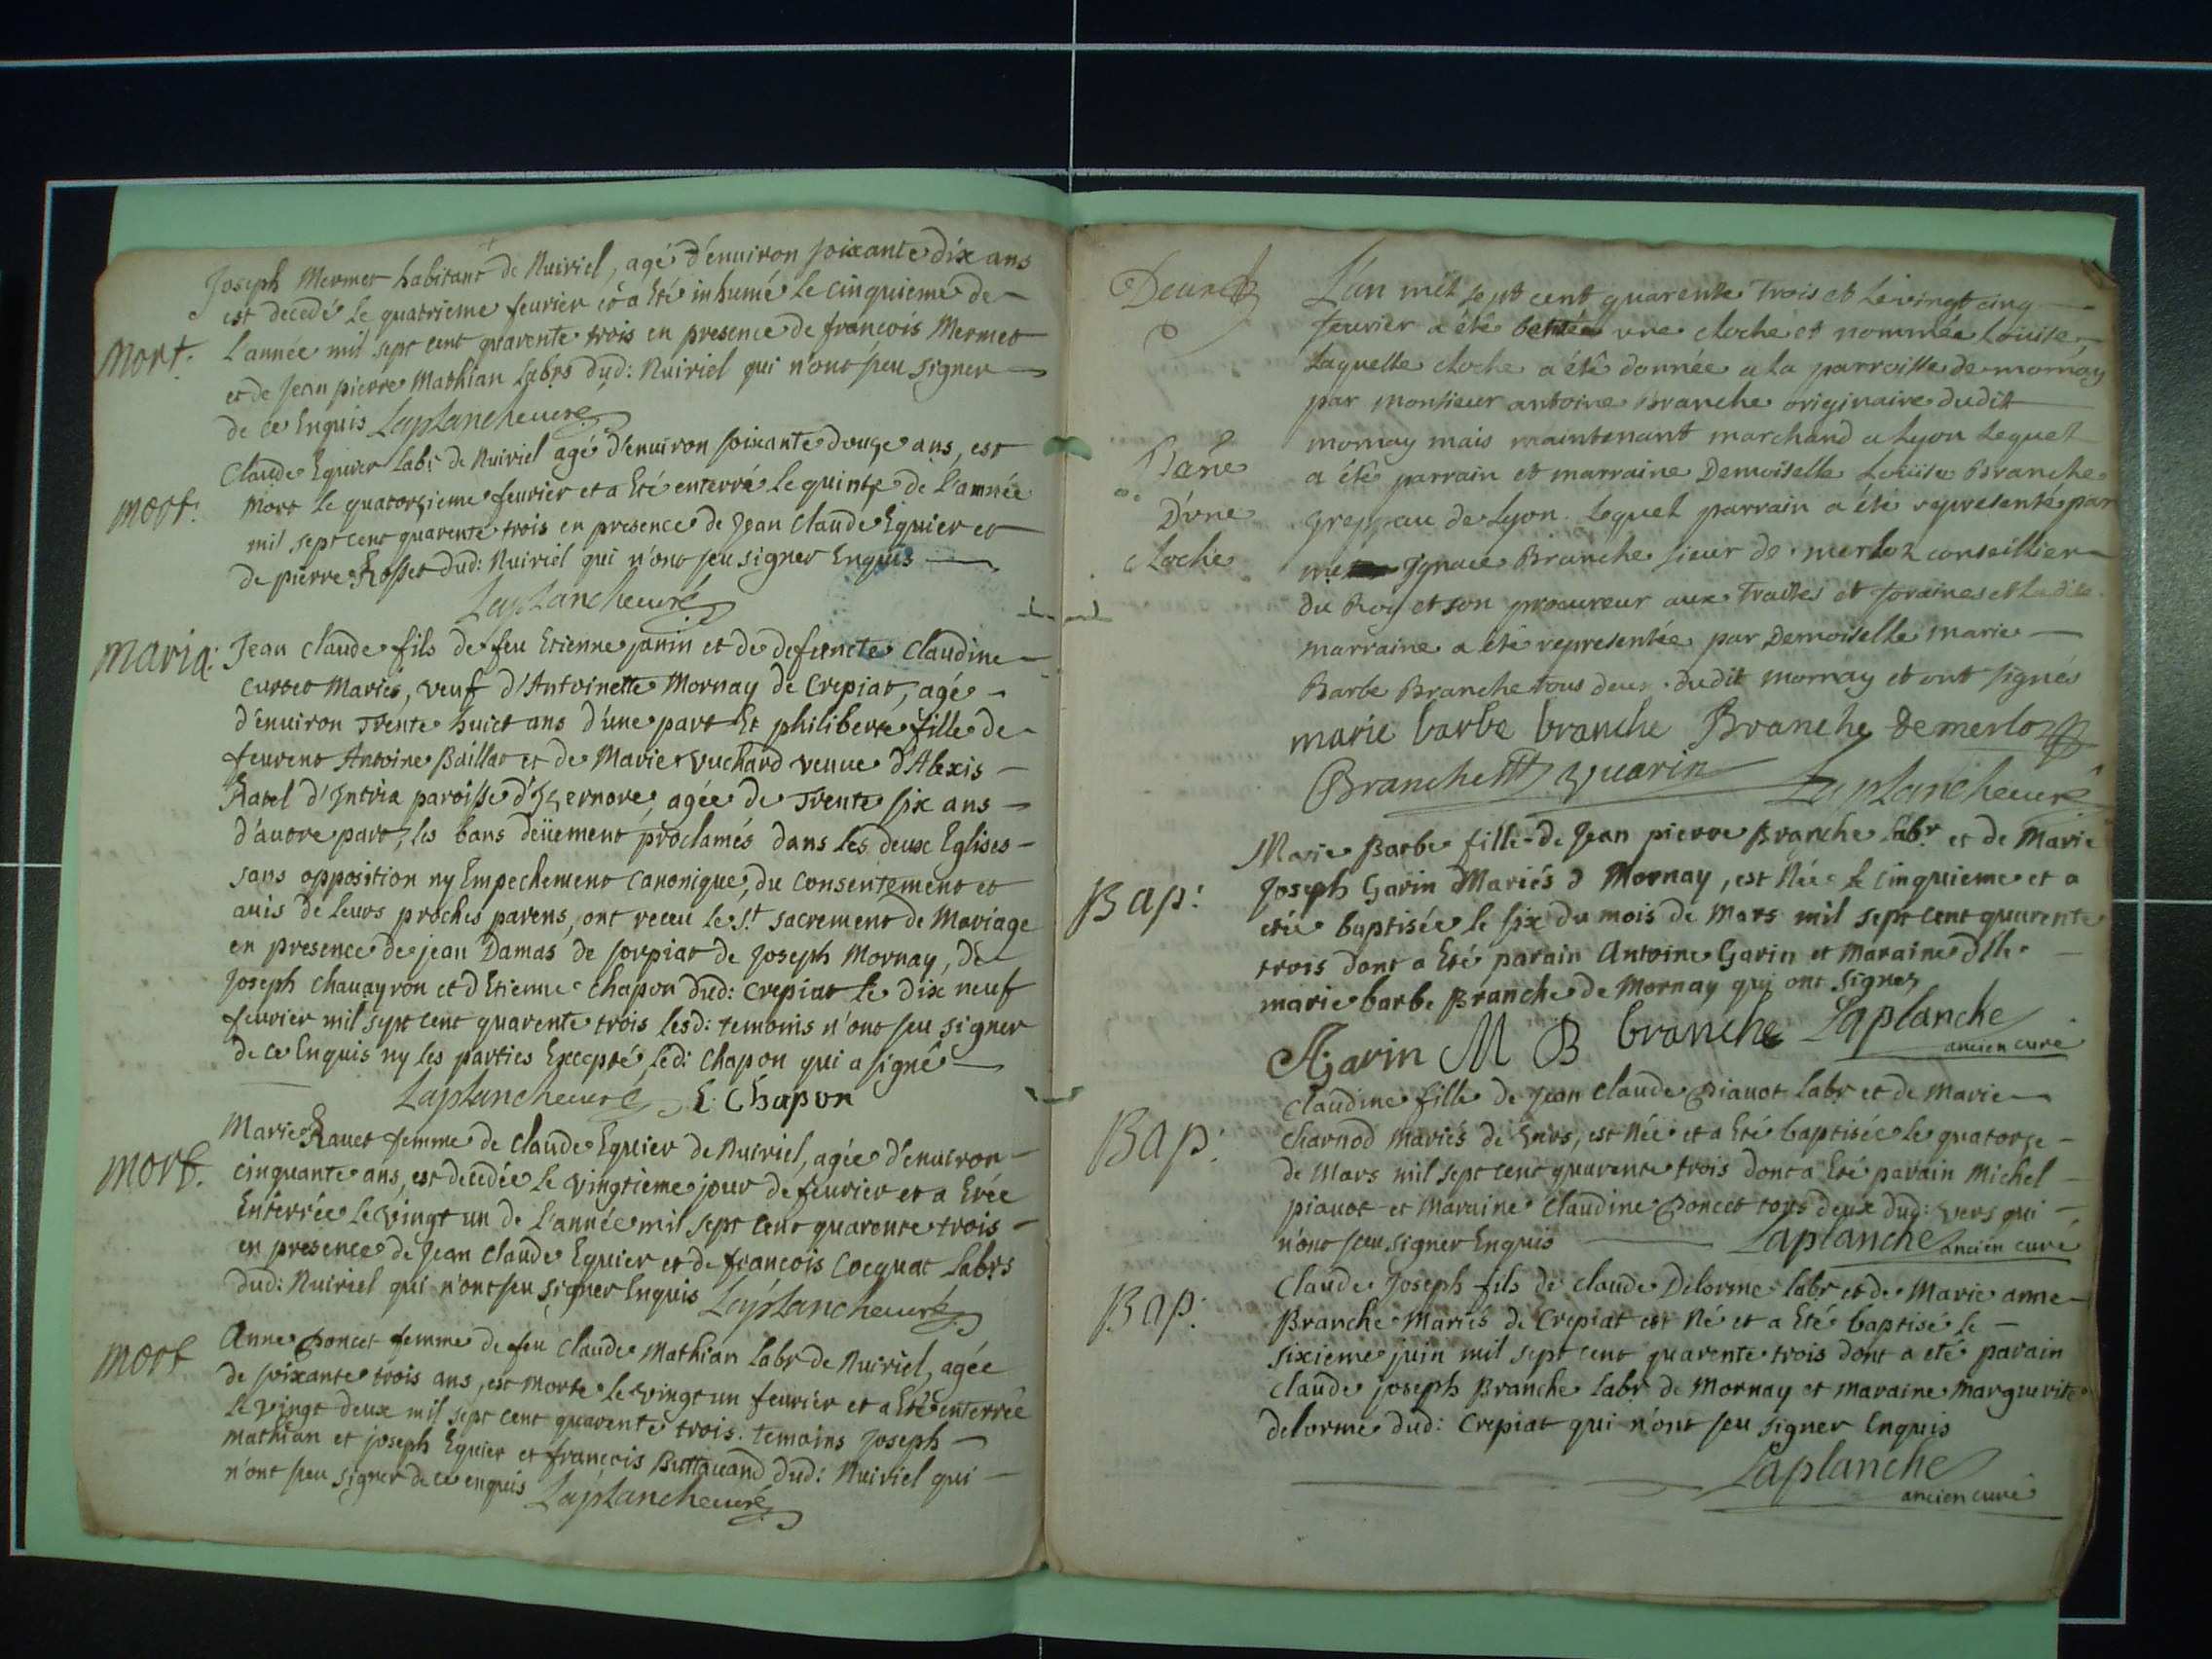 Joseph Mermet habitant de Nuiriel, agé d'enuiron soixante dix ans
est decedé le quatrieme feurier et a Eté inhumé le cinquieme de
mort. L'année mil sept cent quarente trois en presence de francois Mermet
et de Jean pierre Mathian Labrs dud: Nuiriel qui n'ont sceu signer
de ce Enquis Laplanche curé
Claude Eguier Labr de Nuiriel agé d'enuiron soixante douze ans, est
mort: mort le quatorzieme feurier et a Eté enterré le quinze de l'année
mil sept cent quarente trois en presence de Jean Claude Eguier et
de pierre Rosset dud: Nuiriel qui n'ont seu signer Enquis
Laplanche curé
maria: Jean Claude fils de feu Etienne janin et de defuncte Claudine
curtet Mariés, veuf d'Antoinette Mornay de Crepiat, agé
d'enuiron Trente huict ans d'une part Et philiberte fille de
feurent Antoine Baillat et de Marie Vuchard veuue d'Alexis
Ravel d'Intria paroisse d'Izernore, agée de Trente six ans
d'autre part, les bans deüement proclamés dans les deux Eglises
sans opposition ny Empechement canonique, du consentement et
auis de leurs proches parens, ont receu le St sacrement de Mariage
en presence de jean Damas de sorpiat de Joseph Mornay, de
Joseph chauayron et d'Etienne chapon dud: Crepiat le dix neuf
feurier mil sept cent quarente trois lesd: temoins n'ont seu signer
de ce Enquis ny les parties Excepté led: Chapon qui a signé
Laplanche curé E Chapon
Marie Rauet femme de Claude Eguier de Nuiriel, agée d'enuiron
mort. cinquante ans, est decedée le vingtieme jour de feurier et a Etée
Enterrée le vingt un de l'année mil sept cent quarente trois
en presence de Jean Claude Eguier et de francois Cocquat Labrs
dud: Nuiriel qui n'ont seu signer Enquis Laplanche curé
Anne Poncet femme de feu Claude Mathian Labr de Nuiriel, agée
mort de soixante trois ans, est morte le vingt un feurier et a Eté enterrée
le vingt deux mil sept cent quarente trois. temoins Joseph
mathian et joseph Eguier et francois Buttauand dud: Nuiriel qui
n'ont seu signer de ce enquis Laplanche curé
L'an mil sept cent quarente Trois et le vingt cinq
feurier a été une cloche et nommée Louise
Laquelle cloche a été donnée a la parroisse de mornay
par monsieur antoine Branche originaire dudit
mornay mais maintenant marchand a Lyon Lequel
a été parrain et marraine Demoiselle Louise Branche
D'vne
greppau de Lyon. Lequel parrain a été representé par
cloche
me Ignace Branche sieur de merloz conseillier
du Roy et son procureur aux Traittes et foraines et Ladite
marraine a été representée par Demoiselle marie
Barbe Branche tous deux dudit mornay et ont signés
marie barbe branche Branche de merloz
Branche guarin Laplanche curé
Marie Barbe fille de Jean pierre Branche labr. et de Marie
Bap: Joseph Garin Mariés d Mornay, est Née le cinquieme et a
etée baptisée le six du mois de Mars mil sept cent quarente
trois dont a Eté parain Antoine Garin et Maraine dlle
marie barbe Branche de Mornay qui ont signes
A Garin M B branche Laplanche
ancien curé
Claudine fille de Jean Claude Piauot labr et de Marie
Bap: Charnod Mariés de Vers, est Née et a Eté baptisée le quatorze
de Mars mil sept cent quarente trois dont a Eté parain Michel
piauot et Maraine Claudine Poncet tous deux dud: Vers qui
n'ont sceu signer Enquis Laplanche ancien curé
Claude Joseph fils de claude Delorme labr et de Marie anne
Bap: Branche Mariés de Crepiat est Né et a Eté baptisé le
sixieme juin mil sept cent quarente trois dont a eté parain
Claude joseph Branche labr de Mornay et maraine Marguerite
delorme dud: Crepiat qui n'ont seu signer Enquis
Laplanche
ancien curé